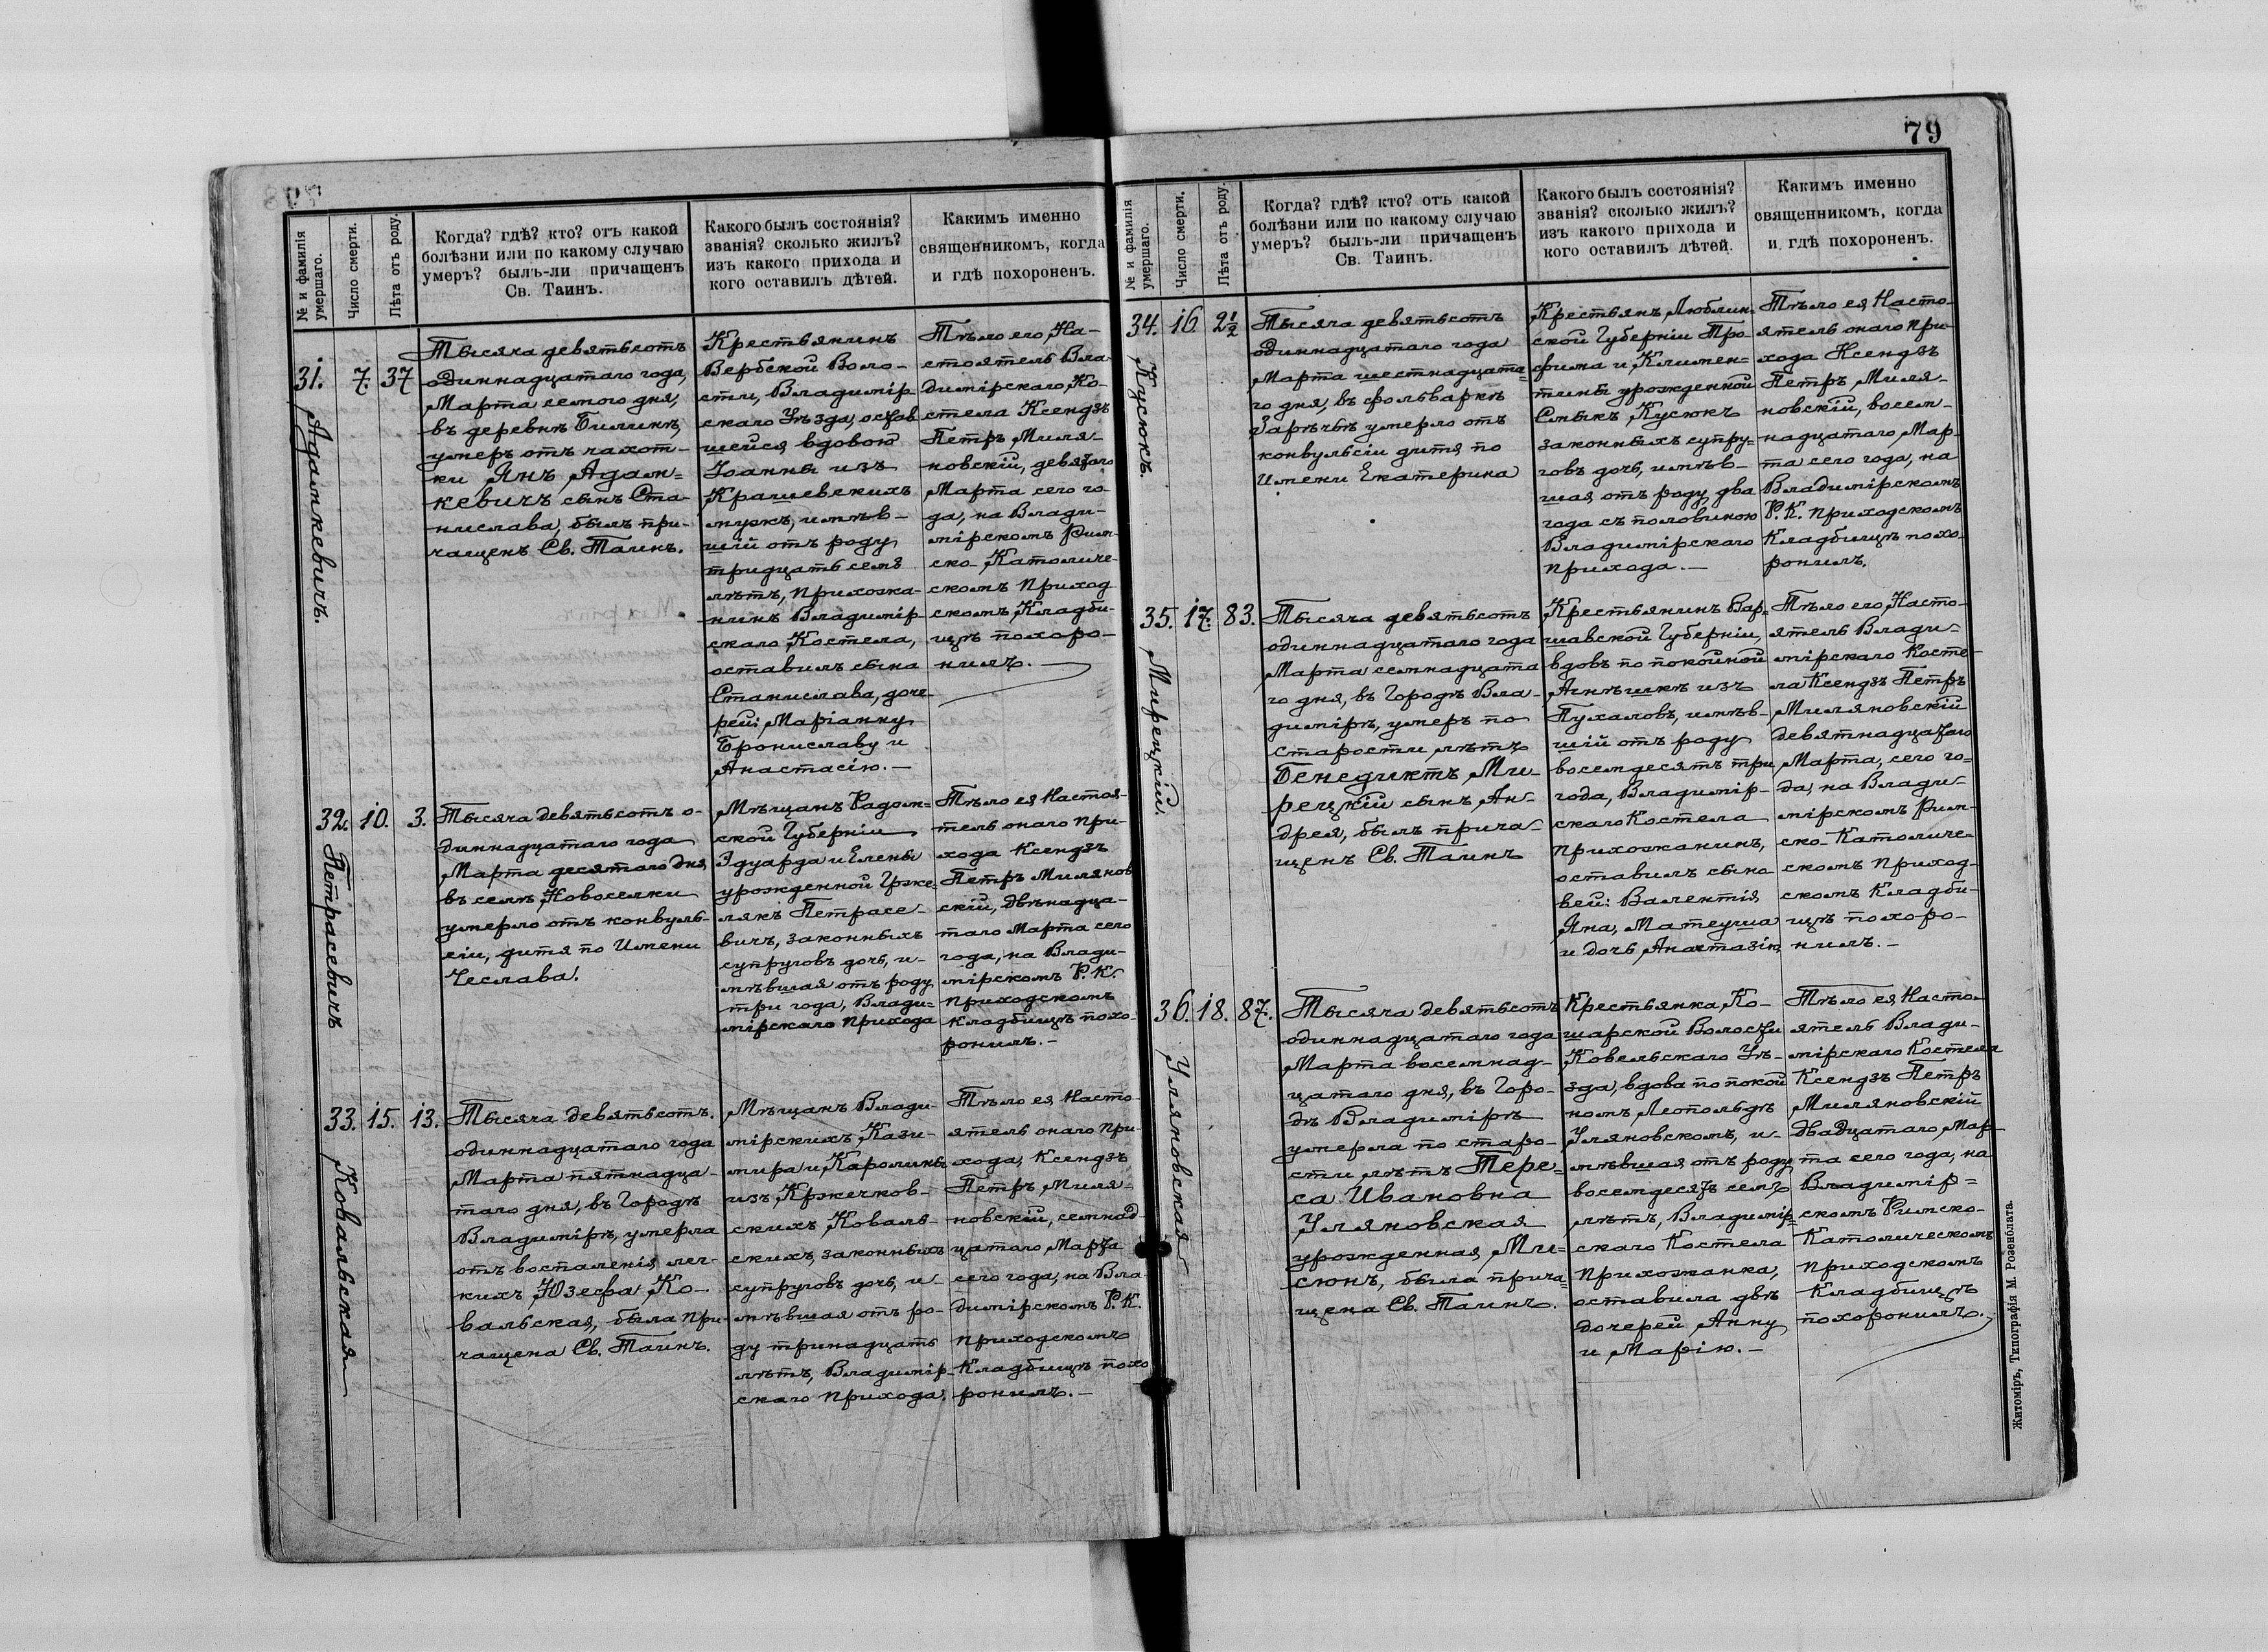 79
№ и фамилія
умершаго.
Число смерти.
Лѣта отъ роду.
Когда? гдѣ? кто? отъ какой
болѣзни или по какому случаю
умеръ? былъ-ли причащенъ
Св. Таинъ.
Какого былъ состоянія?
званія? сколько жилъ?
изъ какого прихода и
кого оставилъ дѣтей.
Какимъ именно
священникомъ, когда
и гдѣ похороненъ.
31.
Адамкевичъ.
7.
37
Тысяча девятьсотъ
одиннадцатаго года,
Марта семого дня,
въ деревнѣ Билинѣ,
умеръ отъ чахот-
ки Янъ Адам=
кевичъ сынъ Ста-
нислава, былъ при-
чащенъ Св. Таинъ.
Крестьянинъ
Вербской Воло-
сти, Владимір-
скаго Уѣзда, остав
шейся вдовою
Іоанны изъ
Крашевскихъ
мужъ, имѣв-
шій отъ роду
тридцать семь
лѣтъ, прихожа-
нинъ Владимір
скаго Костела,
оставилъ сына
Станислава, доче-
рей: Маріанну
Брониславу и
Анастасію.-
Тѣло его, На-
стоятель Вла-
димірскаго, Ко-
стела Ксендзъ
Петръ Миля-
новскій, девятаго
Марта сего го-
да, на Влади-
мірскомъ Рим-
ско-Католиче-
скомъ приход
скомъ, Кладби-
щѣ похоро-
нилъ.-
32.
Петрасевичъ
10.
3.
Тысяча девятьсотъ о-
диннадцатаго года
Марта десятаго дня,
въ селѣ Новоселки
умерло отъ конвуль-
сіи, дитя по Имени
Чеслава.
Мѣщанъ Радом=
ской Губерніи
Эдуарда и Елены
урожденной Грже-
лякъ Петрасе-
вичъ, законныхъ
супруговъ дочь, и-
мѣвшая отъ роду
три года, Влади=
мірскаго прихода
Тѣло ея Настоя-
тель онаго при-
хода Ксендзъ
Петръ Милянов
скій, двѣнадца-
таго Марта сего
года, на Влади-
мірскомъ Р.К.
приходскомъ
кладбищѣ похо-
ронилъ.-
33.
Ковальская
15.
13.
Тысяча девятьсотъ.
одиннадцатаго года
Марта пятнадца-
таго дня, въ Городѣ
Владимірѣ, умерла
отъ воспаленія лег-
кихъ Юзефа Ко-
вальская, была при-
чащена Св. Таинъ.
Мѣщанъ Влади-
мірскихъ Кази-
мира и Каролины
изъ Кржечков-
скихъ Коваль-
скихъ, законныхъ
супруговъ дочь, и-
мѣвшая отъ ро-
ду тринадцать
лѣтъ, Владимір-
скаго прихода.
Тѣло ея Насто-
ятель онаго при-
хода, Ксендзъ
Петръ Миля-
новскій, семнад-
цатаго Марта
сего года, на Вла-
димірскомъ Р.К.
приходскомъ
Кладбищѣ похо
ронилъ.-
№ и фамилія
умершаго.
Число смерти.
Лѣта отъ роду.
Когда? гдѣ? кто? отъ какой
болѣзни или по какому случаю
умеръ? былъ-ли причащенъ
Св. Таинъ.
Какого былъ состоянія?
званія? сколько жилъ?
изъ какого прихода и
кого оставилъ дѣтей.
Какимъ именно
священникомъ, когда
и гдѣ похороненъ.
34.
Кусюкъ.
16
2½
Тысяча девятьсотъ
одиннадцатаго года
Марта шестнадцата-
го дня, въ фольваркѣ
Зарѣчьѣ умерло отъ
конвульсіи дитя по
Имени Екатерина
Крестьянъ Люблин-
ской Губерніи Тро-
фима и Климен=
тины урожденной
Смыкъ Кусюкъ
законныхъ супру-
говъ дочь, имѣв-
шая отъ роду два
года съ половиною
Владимірскаго
прихода.-
Тѣло ея Насто-
ятель онаго при
хода Ксендзъ
Петръ Миля-
новскій, восем-
надцатаго Мар-
та сего года, на
Владимірскомъ
Р.К. приходскомъ
Кладбищѣ похо-
ронилъ.
35.
Мирецкій.
17.
83.
Тысяча девятьсотъ
одиннадцатаго года
Марта семнадцата-
го дня, въ Городѣ Вла-
димірѣ, умеръ по
старости лѣтъ
Бенедиктъ Ми-
рецкій сынъ Ан-
дрея, былъ прича-
щенъ Св. Таинъ
Крестьянинъ Вар=
шавской Губерніи,
вдовъ по покойной
Агнѣшкѣ изъ
Пухаловъ, имѣв-
шій отъ роду
восемдесятъ три
года, Владимір-
скаго Костела
прихожанинъ,
оставилъ сыно
вей: Валентія
Яна, Матеуша
и дочь Анастазію
Тѣло его, Насто-
ятель Влади-
мірскаго Косте-
ла Ксендзъ Петръ
Миляновскій
девятнадцатаго
Марта, сего го-
да, на Влади-
мірскомъ Рим-
ско-Католиче-
скомъ приход-
скомъ Кладби-
щѣ похоро-
нилъ.-
36.
Уляновская
18.
87.
Тысяча девятьсотъ
одиннадцатаго года
Марта восемнад-
цатаго дня, въ Горо-
дѣ Владимірѣ
умерла по старо-
сти лѣтъ Тере=
са Ивановна
Уляновская
урожденная, Ми=
сюнъ, была прича=
щена Св. Таинъ.
Крестьянка, Ко-
шарской Волости
Ковельскаго Уѣ-
зда, вдова по покой
номъ Леопольдѣ
Уляновскомъ, и-
мѣвшая отъ роду
восемдесятъ семь
лѣтъ, Владимір-
скаго Костела
прихожанка,
оставила двѣ
дочерей Анну
и Марію.-
Тѣло ея Насто-
ятель Влади-
мірскаго Костела
Ксендзъ Петръ
Миляновскій
двадцатаго, Мар-
та сего года, на
Владимір=
скомъ Римско-
Католическомъ
приходскомъ
Кладбищѣ
похоронилъ.
Житоміръ, Типографія М. Розенблата.